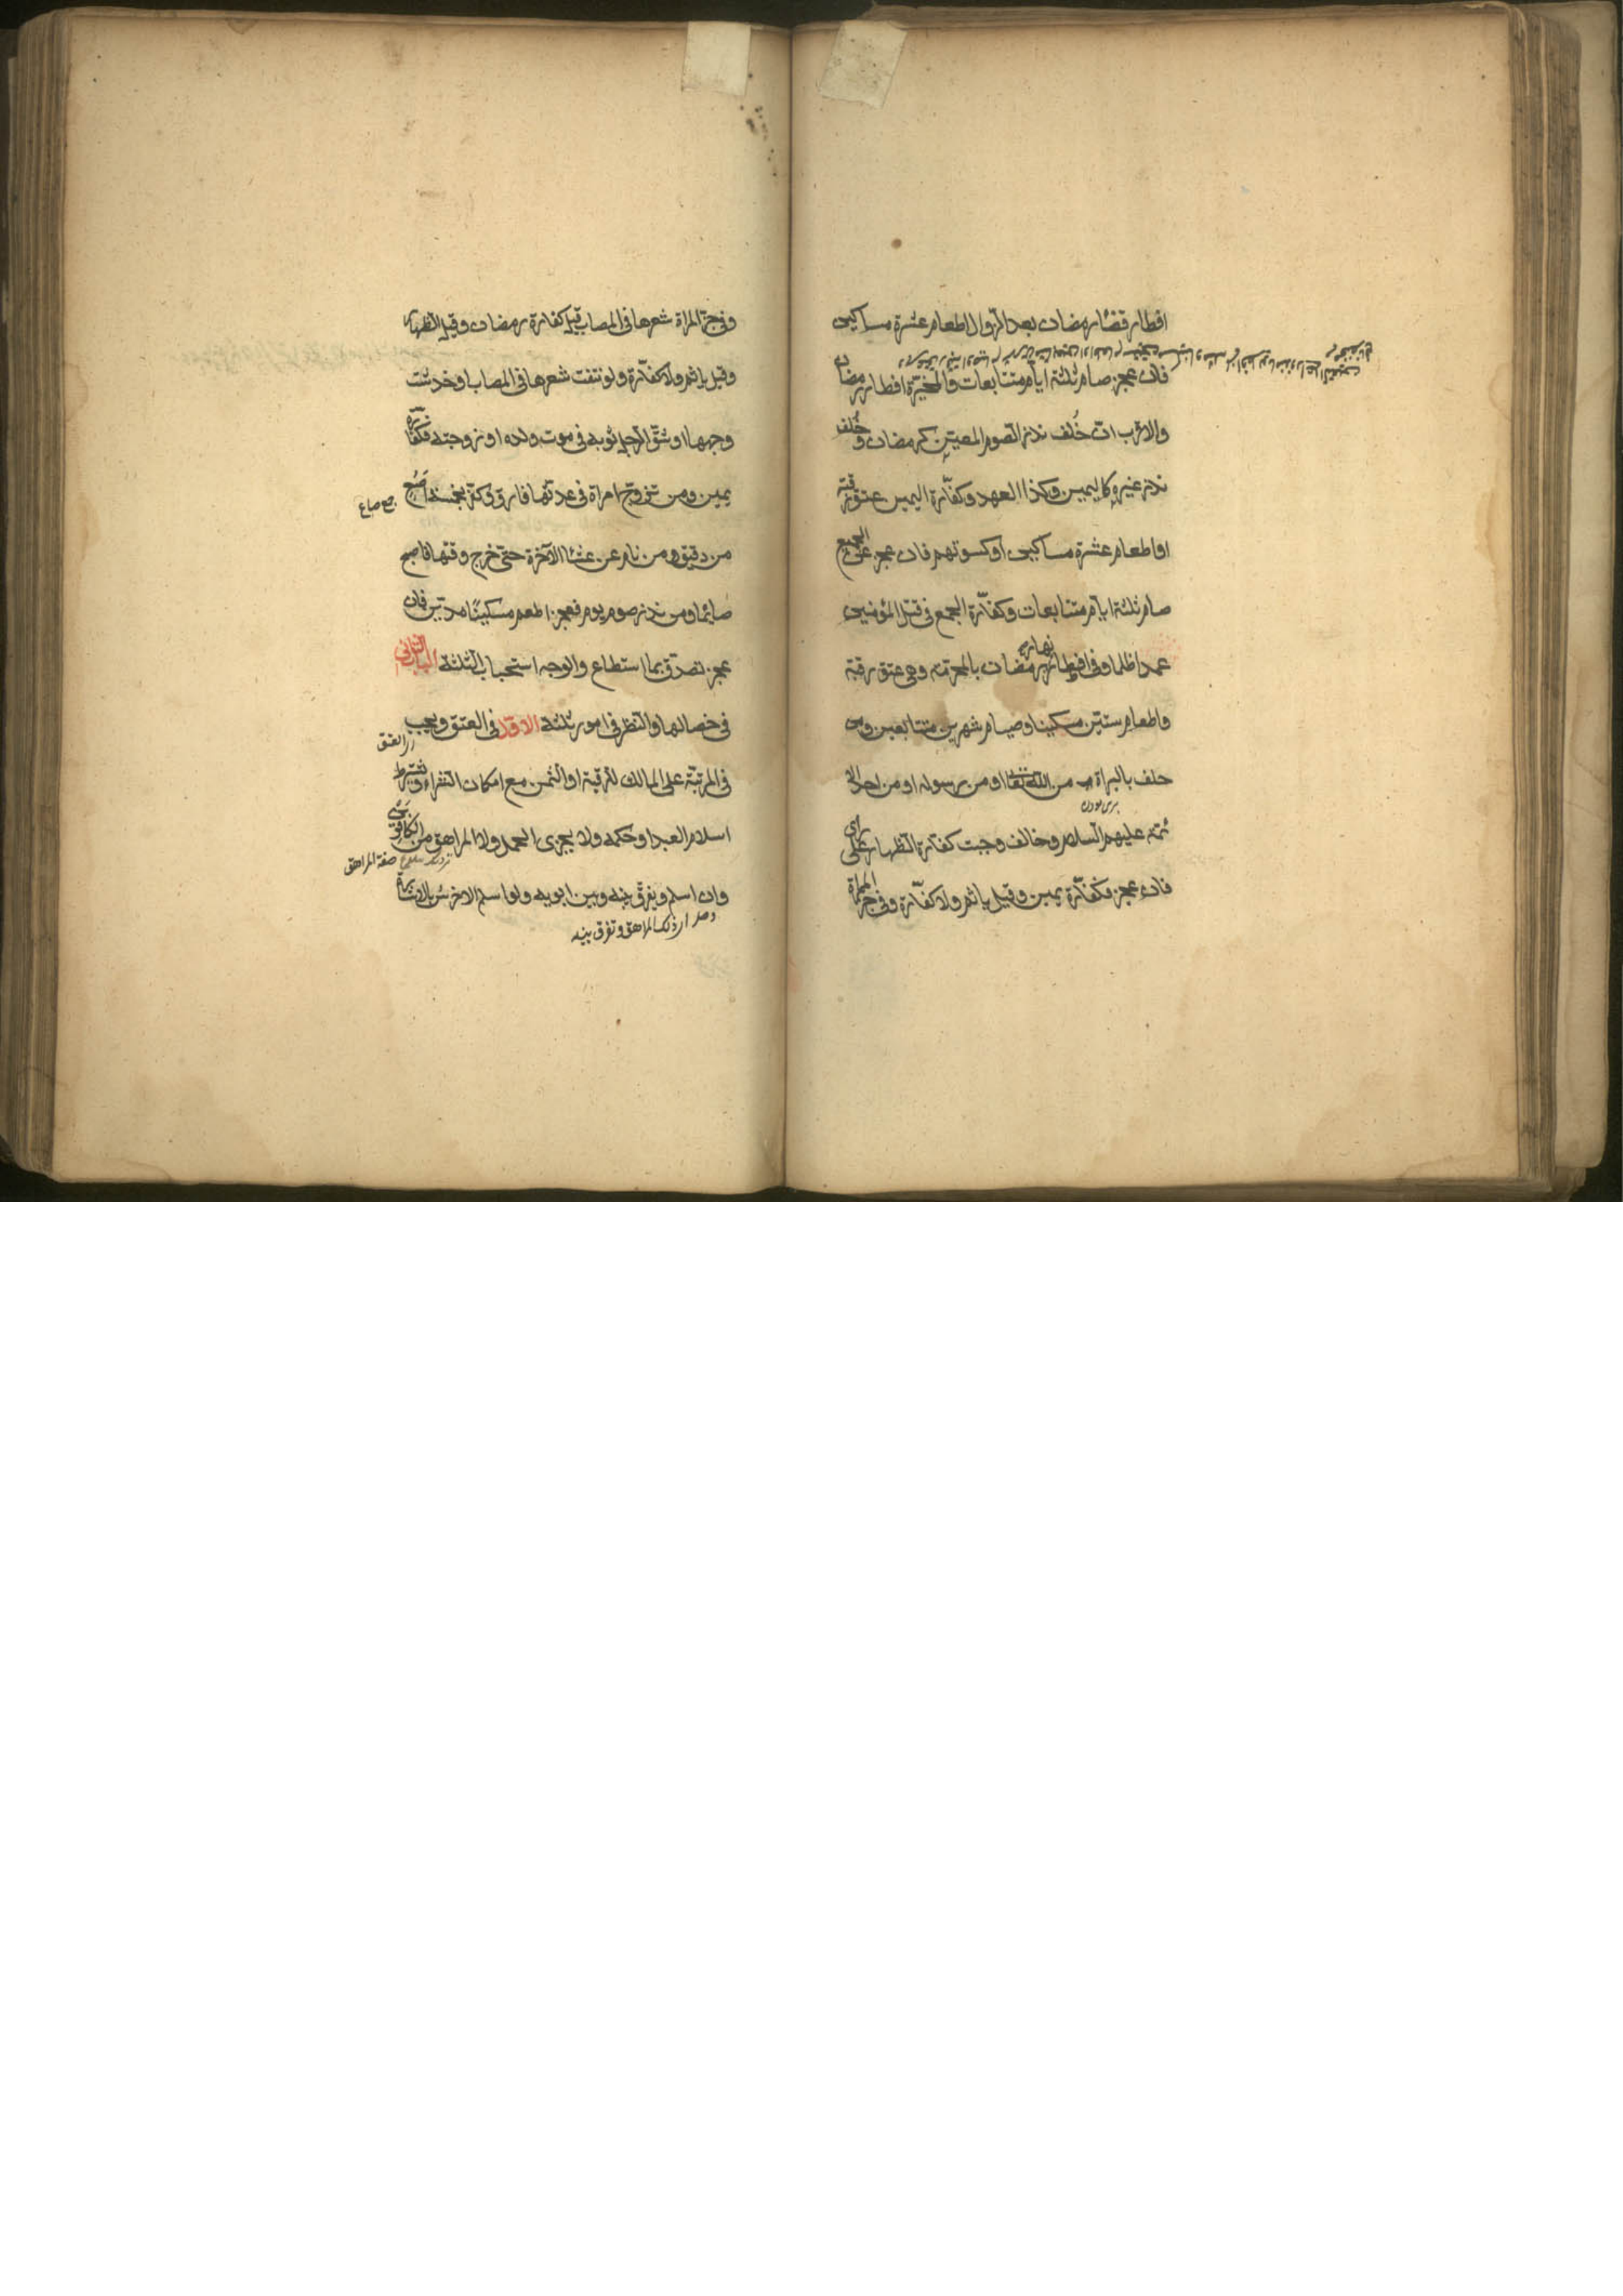 افطار قضاء رمضان بعد الزوال اطعام عشرة مساكين
فان عجز صام ثلثة ايام متتابعات والمخيرة افطار رمضان
والاقرب ان خُلف نذر الصوم المعين كرمضان وخُلف
نذر غيره كاليمين وكذا العهد وكفارة اليمين عتق رقبة
او اطعام عشرة مساكين او كسوتهم فان عجز عن الجميع
صام ثلثة ايام متتابعات وكفارة الجمع في قتل المؤمنين
عمدا ظلما وفي افطار نهار رمضان بالمحرم وهي عتق رقبة
واطعام ستين مسكينا وصيام شهرين متتابعين ومن
حلف بالبراة من الله تعالى او من رسوله او من احد الا
برى بودن
ئمة عليهم السلام وخالف وجبت كفارة الظهار على راي
فان عجز فكفارة يمين وقيل ياثم ولا كفارة وفي جز المراة
وفي جز المراة شعرها في المصاب قيل كفارة رمضان وقيل الظهار
وقيل ياثم ولا كفارة ولو نتفت شعرها في المصاب او خدشت
وجهها او شق الرجل ثوبه في موت ولده او زوجته فكفارة
يمين ومن تزوج امراة في عدتها فارق وكفر بخمسة اصُع
جمع صاع
من دقيق ومن نام عن عشاء الآخرة حتى خرج وقتها اصبح
صايما ومن نذر صوم يوم فعجز اطعم مسكينًا مدين فان
عجز تصدق بما استطاع والوجه استحباب الثلثة الباب الثاني
في خصالها والنظر في امور ثلثة الاول في العتق ويجب
العتق
في المرتبة على المالك للرقبة او الثمن مع امكان الشراء ويشترط
اسلام العبد او حكمه ولا يجزى الحمل ولا المراهق من الكافرين
صفة المراهق
وان اسلم ويفرق بينه وبين ابويه ولو اسلم الاخرس بالاشارة
ذلك المراهق وتفرق بينه